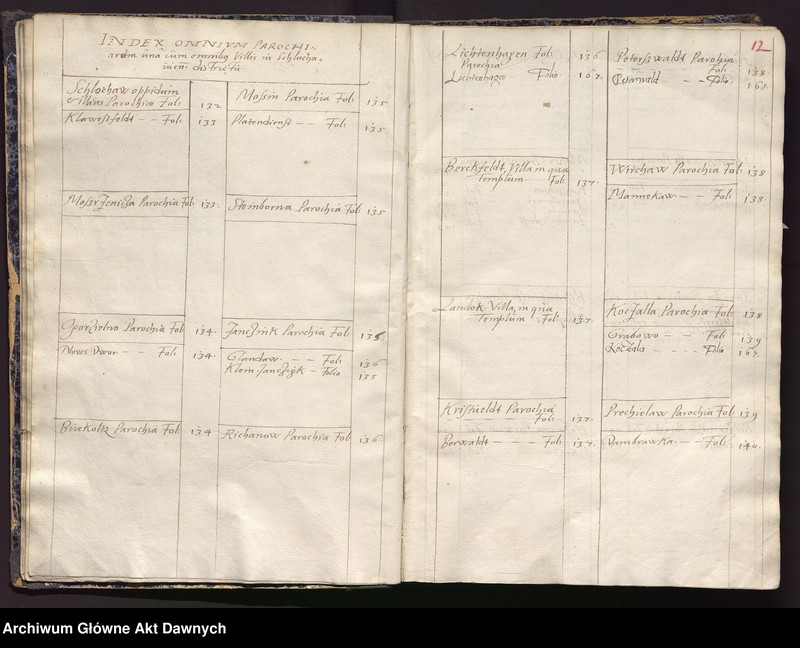 INDEX OMNIUM PAROCHI-
arum unà cum omnibq Villis in Schlocha,
uien: districtu
Schlochaw oppidum
et illius Parochia Fol: 132
Fol: 133
Parochia Fol: 133
Parochia Fol: 134
Nowi Dwor - - Fol: 134
Parochia Fol: 134
Mossin Parochia Fol: 135
Platendienst - - Fol: 135
Steinborna Parochia Fol: 135
Parochia Fol: 135
Glandaw - - Fol: 136
Klein - Folio 135
Richanow Parochia Fol: 136
Lichtenhagen Fol: 136
Parochia
Lichtenhage Folio 167
Berckfeldt, Villa, in qua
Templum Fol: 137
Landok, Villa, in qua
Templum Fol: 137
Parochia
Fol: 137
Berwaldt - - - Fol: 137
12
Peterswaldt Parochia
Fol: 138
Peterwald - - Folio 165
Parochia Fol: 138
Mannekaw - - Fol: 138
Koczalla Parochia Fol: 138
Grabowo - - Fol: 139
Koczala - - - Folio
Prechlaw Parochia Fol: 139
Dambrawka - - Fol: 140
Archiwum Główne Akt Dawnych